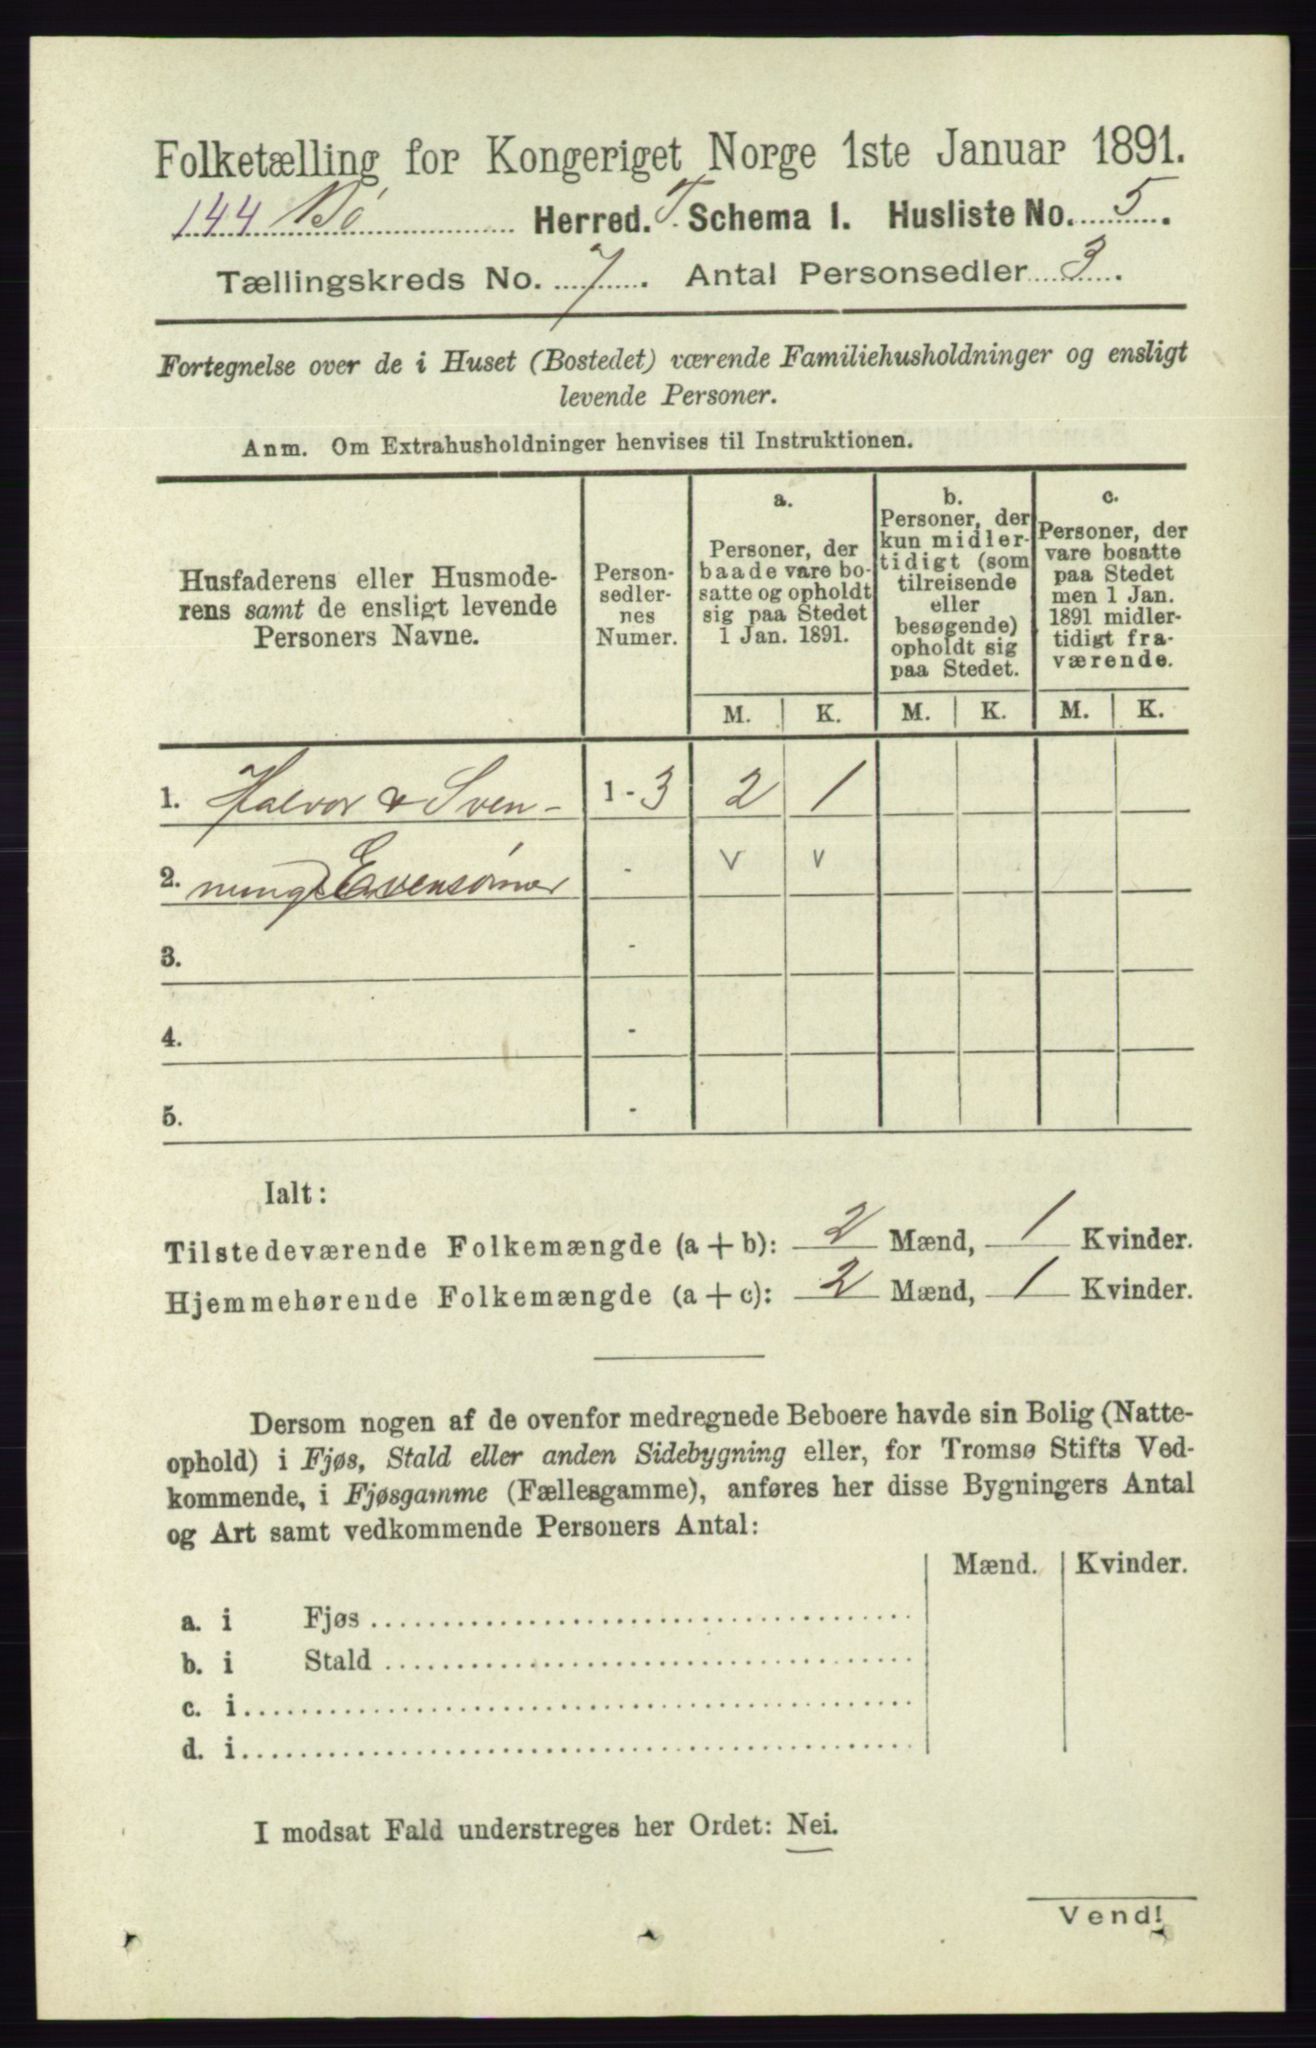 Folketælling for Kongeriget Norge 1ste Januar 1891.
144 Bö Herred. T. Schema I. Husliste No. 5.
Tællingskreds No. 7. Antal Personsedler 3.
Fortegnelse over de i Huset (Bostedet) værende Familiehusholdninger og ensligt
levende Personer.
Anm. Om Extrahusholdninger henvises til Instruktionen.
Husfaderens eller Husmode-
rens samt de ensligt levende
Personers Navne.
Person-
sedler-
nes
Numer.
a.
Personer, der
baade vare bo-
satte og opholdt
sig paa Stedet
1 Jan. 1891.
b.
Personer, der
kun midler-
tidigt (som
tilreisende
eller
besøgende)
opholdt sig
paa Stedet.
c.
Personer, der
vare bosatte
paa Stedet
men 1 Jan.
1891 midler-
tidigt fra-
værende.
M. K. M. K. M. K.
1. Halvor & Sven- 1-3 2 1
2. nung Evensønner - v v
3. -
4. -
5. -
Ialt:
Tilstedeværende Folkemængde (a + b): 2 Mænd, 1 Kvinder.
Hjemmehørende Folkemængde (a + c): 2 Mænd, 1 Kvinder.
Dersom nogen af de ovenfor medregnede Beboere havde sin Bolig (Natte-
ophold) i Fjøs, Stald eller anden Sidebygning eller, for Tromsø Stifts Ved-
kommende, i Fjøsgamme (Fællesgamme), anføres her disse Bygningers Antal
og Art samt vedkommende Personers Antal:
Mænd. Kvinder.
a. i Fjøs
b. i Stald
c. i
d. i
I modsat Fald understreges her Ordet: Nei.
Vend!